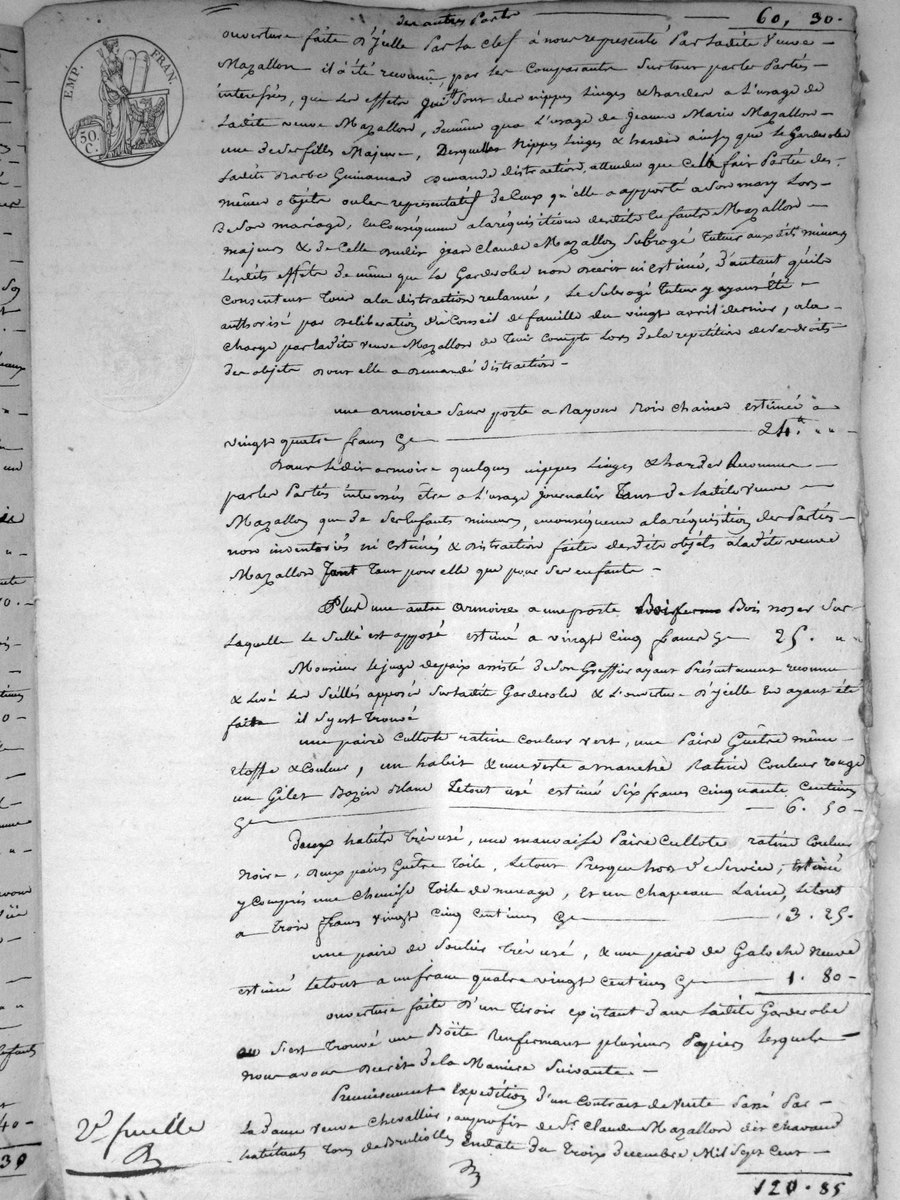 des autres Parts 60, 30.
EMP. FRAN.
50 C.
ouverture faite D'jcelle Par La clef à nous representé Par Ladite Veuve
Mazallon il à été reconnû, par les Comparants Surtout par les Partiés
interessées, que Les effets qui Sont des nippes Linges & hardes a L'usage de
Ladite veuve Mazallon, demême qua L'usage de Jeanne Marie Mazallon
une de ses filles Majeure, Desquelles Nippes Linges & hardes ainsy que Le Garderobe
Ladite Barbe Guinamard Demande distraction, attendu que Celle fait Partie des
même objets ou les representatif de Ceux qu'elle a apporté a Son mary Lors
De Son mariage, En Conséquence alaréquisition desdits Enfants Mazallon
majeurs & de Celle dudit jean Claude Mazallon Subrogé Tuteur aux dits mineurs
Lesdits effets de même que La Garderobe non décrit ni estimé, D'autant qu'ils
Consentent Tous ala distraction reclamée, Le Subrogé Tuteur y ayant été
authorisé par Déliberation du Conseil de famille du vingt avril dernier, ala
Charge par Ladite veuve Mazallon de Tenir Compte Lors de la repetition de ses droits
des objets dont elle a Demandé distraction
une armoire Sans porte a Rayons Bois chaine estimée à
vingt quatre francs Cy 24. " "
Dans Ledit armoire quelques nippes Linges & hardes Reconnue
par les Partiés interessés être a L'usage Journalier Tant de Ladite Veuve
Mazallon que de Ses Enfants mineurs, en conséquence alaréquisition des Partiés
non inventoriés ni Estimés & distraction faites desdits objets aladite veuve
Mazallon Tant Tant pour elle que pour Ses enfants
Plus une autre armoire a une porte Bois noyer Sur
Laquelle Le Scellé est apposé estimé a vingt Cinq francs Cy 25. " "
Monsieur Le juge de paix assisté de Son Greffier ayant Présentement reconnu
& Levé Les Scellés apposés Sur Ladite Garderobe & L'ouverture D'jcelle En ayant été
faite il S'y est Trouvé
une paire Cullote ratine Couleur vert, une Paire Guêtre même
Etoffe & Couleur, un habit & une veste a manche Ratine Couleur rouge
un Gilet Bazin Blanc Letout usé estimé Six francs Cinquante Centimes
Cy 6. 50
Deux habits Très usé, une mauvaise Paire Cullote ratine Couleur
Noire, deux paires Guêtre Toile, Letout Presque hors de Service, estimé
y Compris une Chemise Toile de menage, Et un Chapeau Laine, Letout
a Trois francs vingt Cinq Centimes Cy 3. 25.
une paire de Soulier Très usé, & une paire de Galoche Neuve
estimé Letout a un franc quatre vingt Centimes Cy 1. 80
ouverture faite D'un Tiroir existant dans Ladite Garderobe
S'est Trouvé une Böëte Renfermant plusieurs Papiers Lesquels
nous avons Décrit de la Maniere Suivante.
Premierement Expedition d'un Contrat de vente Passé Par
La dame veuve Chevallier, au profit de Sr Claude Mazallon dit Chavand
habitants Tous de Brulioles En date du Trois Decembre Mil Sept Cent
2e feuille
120. 85